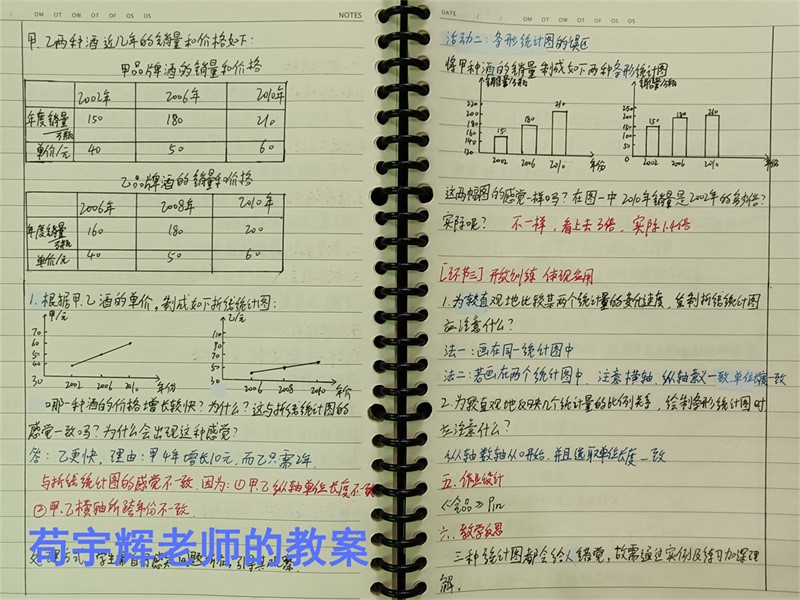 NOTES
甲、乙两种酒近几年的销量和价格如下:
甲品牌酒的销量和价格
2002年 2006年 2010年
年度销量/万瓶 150 180 210
单价/元 40 50 60
乙品牌酒的销量和价格
2006年 2008年 2010年
年度销量/万瓶 160 180 200
单价/元 40 50 60
1. 根据甲、乙酒的单价,制成如下折线统计图:
甲/元
70
60
50
40
30
2002 2006 2010 年份
乙/元
110
90
70
50
30
2006 2008 2010 年份
哪一种酒的价格增长较快?为什么?这与折线统计图的
感觉一致吗?为什么会出现这种感觉?
答:乙更快,理由:甲4年增长10元,而乙只需2年.
与折线统计图的感觉不一致.因为:①甲、乙纵轴单位长度不一致
②甲、乙横轴所跨年份不一致.
苟宇辉老师的教案
DATE
活动二:条形统计图的误区
将甲种酒的销量制成如下两种条形统计图
销售量/万瓶
220
200
180
160
140
120
150 180 210
2002 2006 2010 年份
销售量/万瓶
250
200
150
100
50
0
150 180 210
2002 2006 2010 年份
这两幅图的感觉一样吗?在图一中2010年销量是2002年的多少倍?
实际呢? 不一样,看上去3倍,实际1.4倍
[环节三] 开放训练 体现应用
1.为较直观地比较某两个统计量的变化速度,绘制折线统计图
应注意什么?
法一:画在同一统计图中
法二:若画在两个统计图中,注意横轴、纵轴意义一致,单位长度一致
2.为较直观地反映几个统计量的比例关系,绘制条形统计图时
应注意什么?
纵轴数轴从0开始,并且选取单位长度一致
五.作业设计
《全品》P112
六.教学反思
三种统计图都会给人错觉,故需通过实例及练习加深理
解.